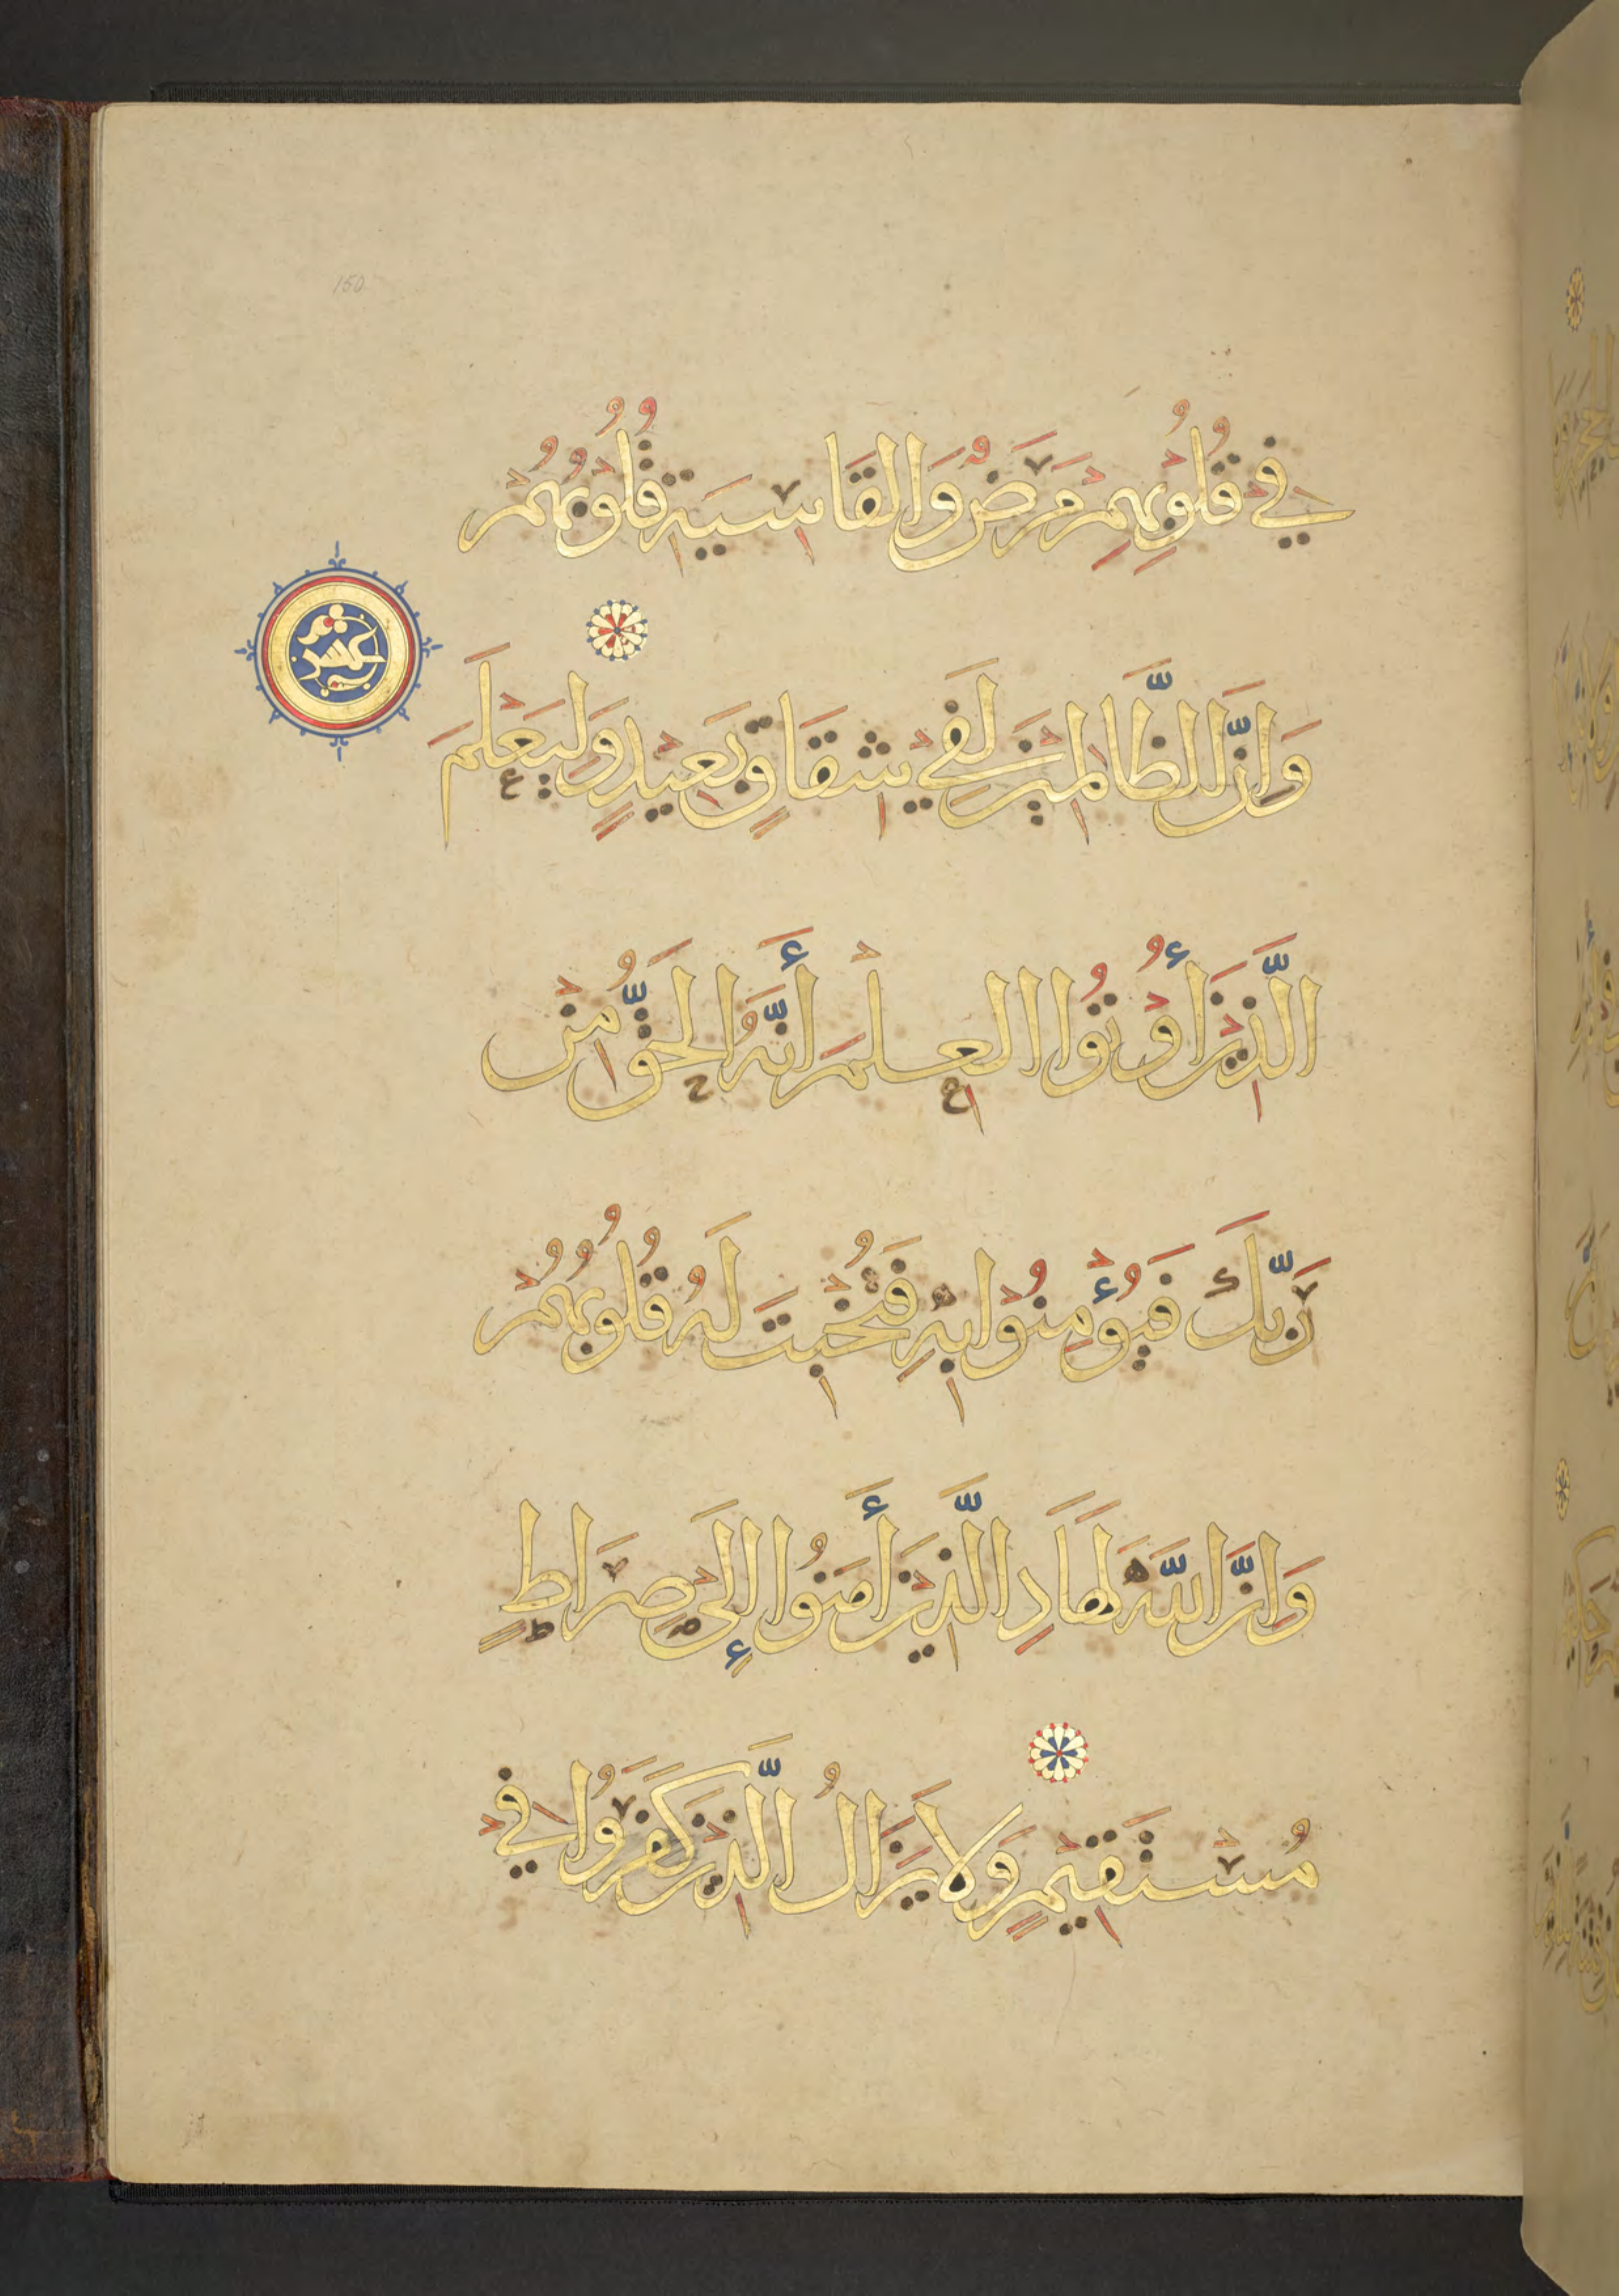 150
فِي قُلُوبِهِمْ مَرَضٌ وَالقَاسِيَةِ قُلُوبُهُمْ
عشر
وَإِنَّ الظَّالِمِيْنَ لَفِيْ شِقَاقٍ بَعِيْدٍ وَلِيَعْلَمَ
الَّذِيْنَ أُوْتُوْا العِلْمَ أَنَّهُ الحَقُّ مِنْ
رَبِّكَ فَيُؤْمِنُوْا بِهِ فَتُخْبِتَ لَهُ قُلُوبُهُمْ
وَإِنَّ اللَّهَ لَهَادِ الَّذِيْنَ أَمَنُوا إِلَى صِرَاطٍ
مُسْتَقِيْمٍ وَلَا يَزَالُ الَّذِيْنَ كَفَرُوا فِيْ